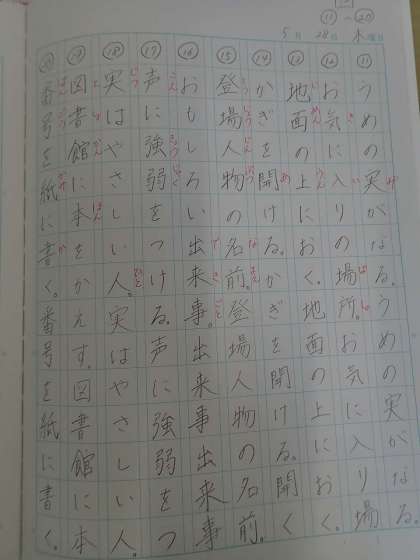 ⑪〜⑳
5月28日 木曜日
⑪うめの実がなる。うめの実がなる。
⑫お気に入りの場所。お気に入りの場
⑬地面の上におく。地面の上におく。
⑭かぎを開ける。かぎを開ける。開く。
⑮登場人物の名前。登場人物の名前。
⑯おもしろい出来事。出来事出来事
⑰声に強弱をつける。声に強弱をつ
⑱実はやさしい人。実はやさしい人。
⑲図書館に本をかえす。図書館に本
⑳番号を紙に書く。番号を紙に書く。